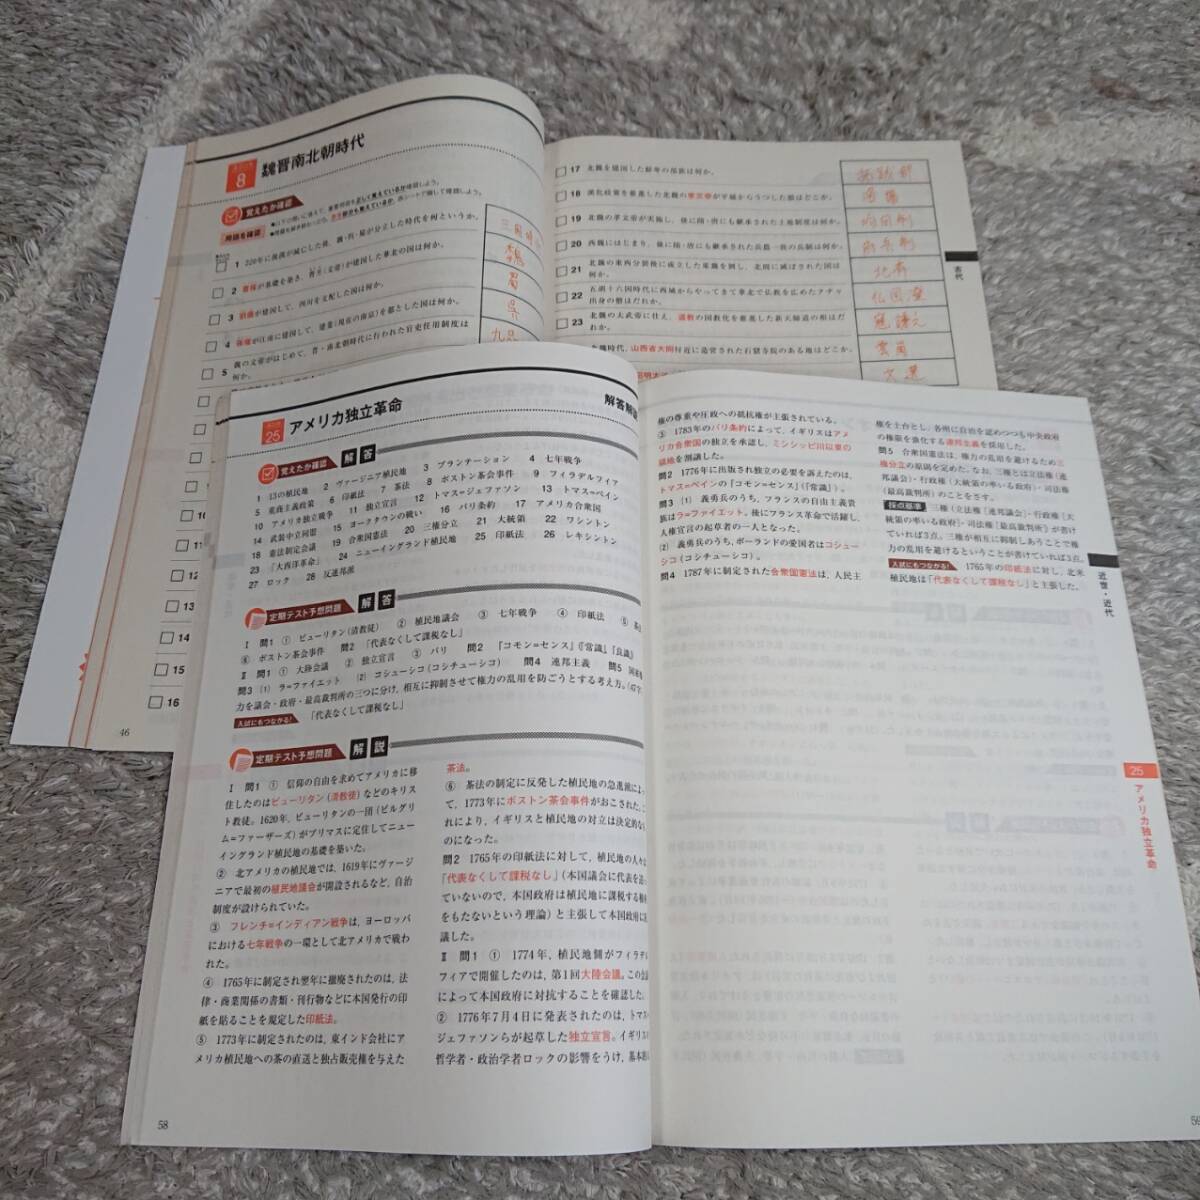 8
魏晋南北朝時代
覚えたか確認
用語を確認
1 220年に後漢が滅亡した後、魏・呉・蜀が分立した時代を何というか。
2 曹操が基礎を築き、曹丕(文帝)が建国した華北の国は何か。
3 劉備が建国して、四川を支配した国は何か。
4 孫権が江南に建国して、建業(現在の南京)を都とした国は何か。
5 魏の文帝がはじめて、晋・南北朝時代に行われた官吏任用制度は
何か。
10
11
12
13
14
15
16
46
三国時代
魏
蜀
呉
九品
17 北魏を建国した鮮卑の部族は何か。
18 漢化政策を推進した北魏の孝文帝が平城からうつした都はどこか。
19 北魏の孝文帝が実施し、後に隋・唐にも継承された土地制度は何か。
20 西魏にはじまり、後に隋・唐にも継承された兵農一致の兵制は何か。
21 北魏の東西分裂後に成立した東魏を倒し、北周に滅ぼされた国は
何か。
22 五胡十六国時代に西域からやってきて華北で仏教を広めたクチャ
出身の僧はだれか。
23 北魏の太武帝に仕え、道教の国教化を推進した新天師道の祖はだ
れか。
北魏時代、山西省大同付近に造営された石窟寺院のある地はどこか。
拓跋部
洛陽
均田制
府兵制
北斉
仏図澄
寇謙之
雲崗
文選
古代
25
アメリカ独立革命
解答解説
覚えたか確認 解答
1 13の植民地 2 ヴァージニア植民地 3 プランテーション 4 七年戦争
5 重商主義政策 6 印紙法 7 茶法 8 ボストン茶会事件 9 フィラデルフィア
10 アメリカ独立戦争 11 独立宣言 12 トマス=ジェファソン 13 トマス=ペイン
14 武装中立同盟 15 ヨークタウンの戦い 16 パリ条約 17 アメリカ合衆国
18 憲法制定会議 19 合衆国憲法 20 三権分立 21 大統領 22 ワシントン
23 「大西洋革命」 24 ニューイングランド植民地 25 印紙法 26 レキシントン
27 ロック 28 反連邦派
定期テスト予想問題 解答
Ⅰ 問1 ① ピューリタン(清教徒) ② 植民地議会 ③ 七年戦争 ④ 印紙法 ⑤ 茶法
⑥ ボストン茶会事件 問2 「代表なくして課税なし」
Ⅱ 問1 ① 大陸会議 ② 独立宣言 ③ パリ 問2 『コモン=センス』(『常識』、『良識』)
問3 (1) ラ=ファイエット (2) コシューシコ(コシチューシコ) 問4 連邦主義 問5 国家権
力を議会・政府・最高裁判所の三つに分け、相互に抑制させて権力の乱用を防ごうとする考え方。(47字)
入試にもつながる! 「代表なくして課税なし」
定期テスト予想問題 解説
Ⅰ 問1 ① 信仰の自由を求めてアメリカに移
住したのはピューリタン(清教徒)などのキリス
ト教徒。1620年、ピューリタンの一団(ピルグリ
ム=ファーザーズ)がプリマスに定住してニュー
イングランド植民地の基礎を築いた。
② 北アメリカの植民地では、1619年にヴァージ
ニアで最初の植民地議会が開設されるなど、自治
制度が設けられていた。
③ フレンチ=インディアン戦争は、ヨーロッパ
における七年戦争の一環として北アメリカで戦わ
れた。
④ 1765年に制定され翌年に撤廃されたのは、法
律・商業関係の書類・刊行物などに本国発行の印
紙を貼ることを規定した印紙法。
⑤ 1773年に制定されたのは、東インド会社にア
メリカ植民地への茶の直送と独占販売権を与えた
58
茶法。
⑥ 茶法の制定に反発した植民地の急進派によっ
て、1773年にボストン茶会事件がおこされた。こ
れにより、イギリスと植民地の対立は決定的なも
のになった。
問2 1765年の印紙法に対して、植民地の人々は
「代表なくして課税なし」(本国議会に代表を送っ
ていないので、本国政府は植民地に課税する権利
をもたないという理論)と主張して本国政府に抗
議した。
Ⅱ 問1 ① 1774年、植民地側がフィラデル
フィアで開催したのは、第1回大陸会議。この会議
によって本国政府に対抗することを確認した。
② 1776年7月4日に発表されたのは、トマス=
ジェファソンらが起草した独立宣言。イギリスの
哲学者・政治学者ロックの影響をうけ、基本的人
権の尊重や圧政への抵抗権が主張されている。
③ 1783年のパリ条約によって、イギリスはアメ
リカ合衆国の独立を承認し、ミシシッピ川以東の
領地を割譲した。
問2 1776年に出版され独立の必要を訴えたのは、
トマス=ペインの『コモン=センス』(『常識』)。
問3 (1) 義勇兵のうち、フランスの自由主義貴
族はラ=ファイエット。後にフランス革命で活躍し、
人権宣言の起草者の一人となった。
(2) 義勇兵のうち、ポーランドの愛国者はコシュー
シコ(コシチューシコ)。
問4 1787年に制定された合衆国憲法は、人民主
権を土台とし、各州に自治を認めつつも中央政府
の権限を強化する連邦主義を採用した。
問5 合衆国憲法は、権力の乱用を避けるため三
権分立の原則を定めた。なお、三権とは立法権(連
邦議会)・行政権(大統領の率いる政府)・司法権
(最高裁判所)のことをさす。
採点基準 三権(立法権「連邦議会」・行政権「大
統領の率いる政府」・司法権「最高裁判所」)が書け
ていれば3点。三権が相互に抑制しあうことで権
力の乱用を避けるということが書けていれば3点。
入試にもつながる! 1765年の印紙法に対し、北米
植民地は「代表なくして課税なし」と主張した。
近世・近代
25
アメリカ独立革命